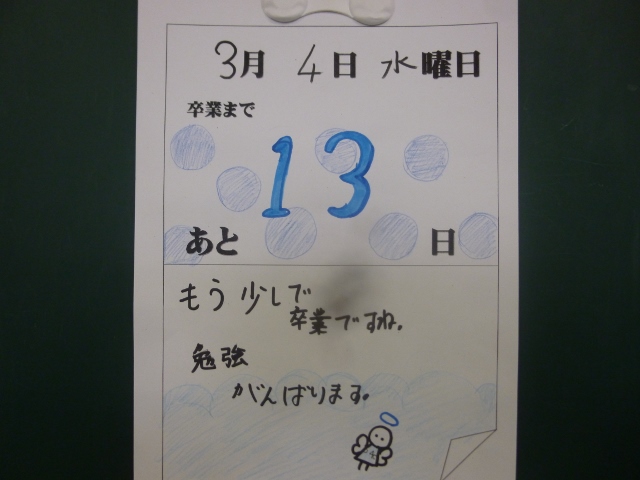 3月 4日 水曜日
卒業まで
13
あと 日
もう少しで
卒業ですね。
勉強
がんばります。